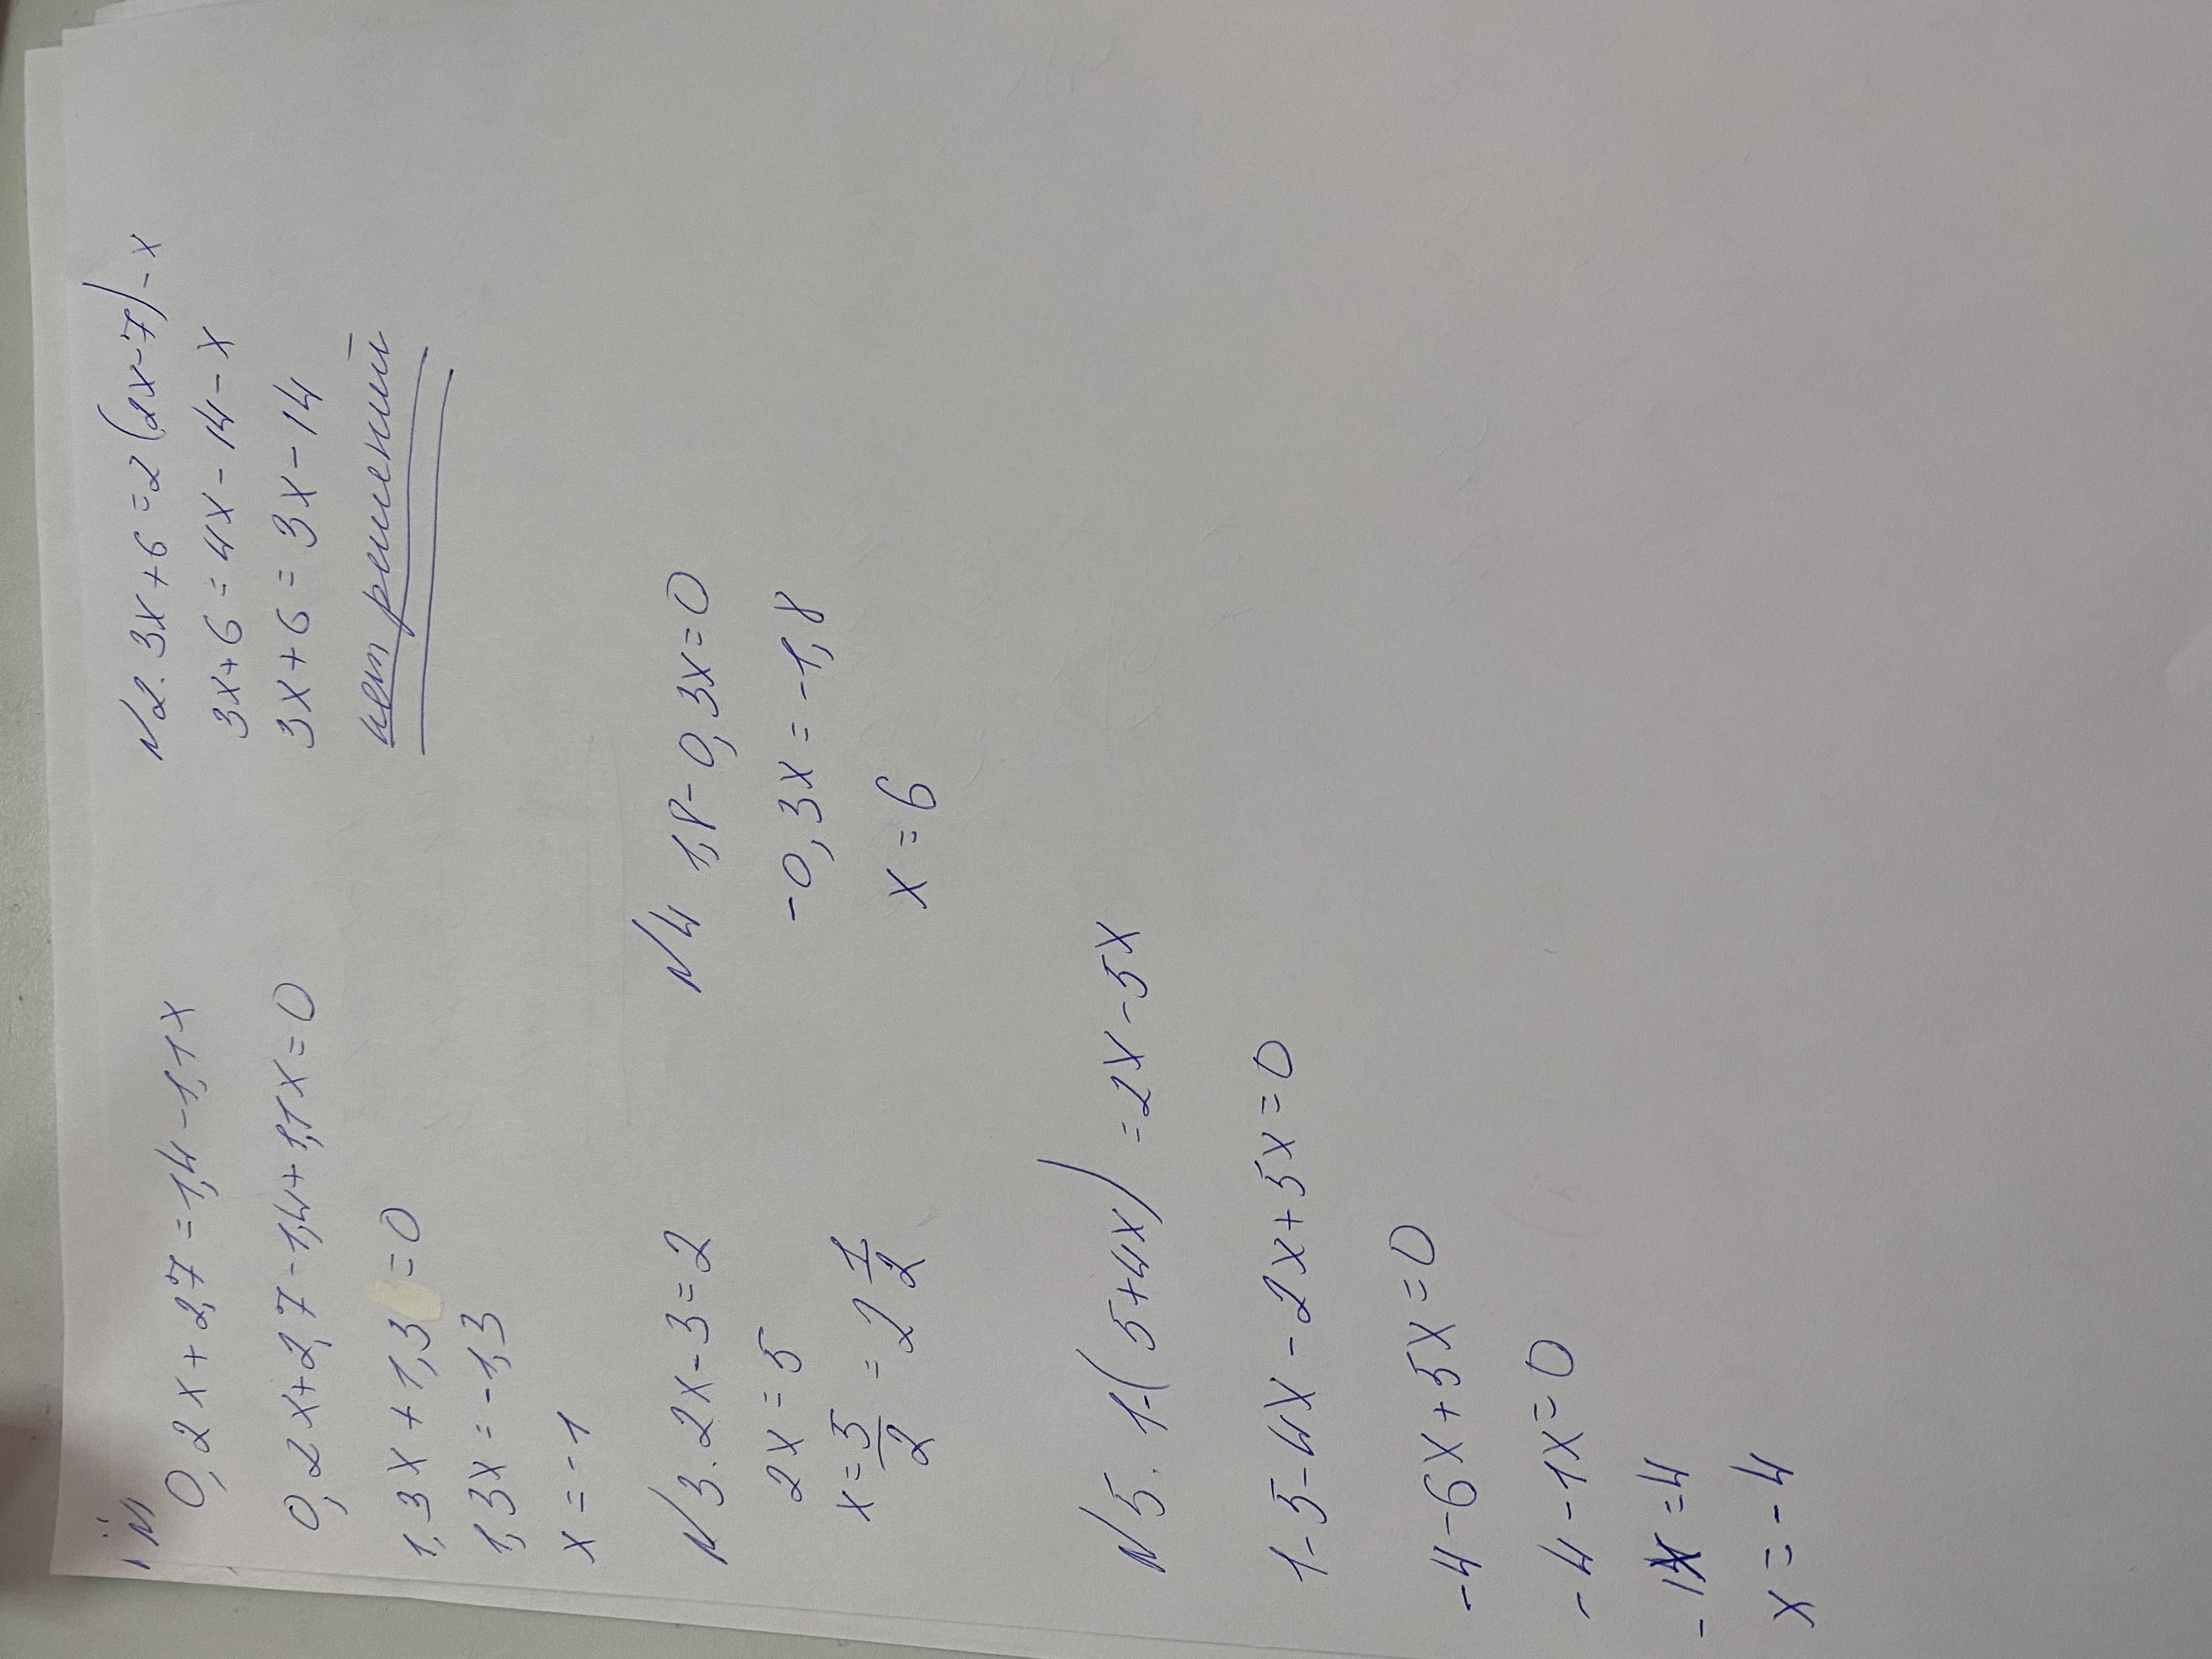 №1
0,2x+2,7=1,4-1,1x
0,2x+2,7-1,4+1,1x=0
1,3x+1,3=0
1,3x=-1,3
x=-1
№2. 3x+6=2(2x-7)-x
3x+6=4x-14-x
3x+6=3x-14
нет решений
№3. 2x-3=2
2x=5
x=5/2=2 1/2
№4 1,8-0,3x=0
-0,3x=-1,8
x=6
№5. 1-(5+4x)=2x-5x
1-5-4x-2x+5x=0
-4-6x+5x=0
-4-1x=0
-1x=4
x=-4